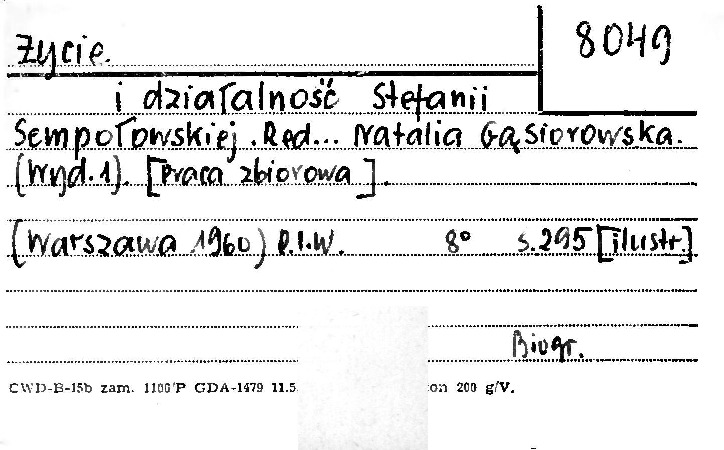 Życie.
8049
i działalność Stefanii
Sempołowskiej. Red... Natalia Gąsiorowska.
(Wyd. 1). [Praca zbiorowa].
(Warszawa 1960) P.I.W. 8° s. 295 [ilustr.]
Biogr.
CWD-B-15b zam. 1106/P GDA-1479 11.5. on 200 g/V.